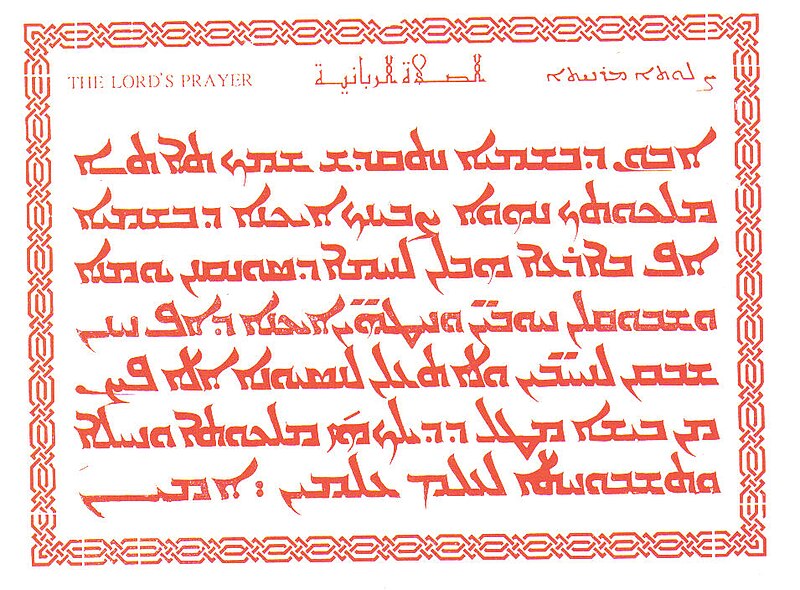 THE LORD'S PRAYER الصلاة الربانية ܨܠܘܬܐ ܡܪܢܝܬܐ
ܐܒܘܢ ܕܒܫܡܝܐ ܢܬܩܕܫ ܫܡܟ ܬܐܬܐ
ܡܠܟܘܬܟ ܢܗܘܐ ܨܒܝܢܟ ܐܝܟܢܐ ܕܒܫܡܝܐ
ܐܦ ܒܐܪܥܐ ܗܒ ܠܢ ܠܚܡܐ ܕܣܘܢܩܢܢ ܝܘܡܢܐ
ܘܫܒܘܩ ܠܢ ܚܘܒܝ̈ܢ ܘܚܛܗ̈ܝܢ ܐܝܟܢܐ ܕܐܦ ܚܢܢ
ܫܒܩܢ ܠܚܝ̈ܒܝܢ ܘܠܐ ܬܥܠܢ ܠܢܣܝܘܢܐ ܐܠܐ ܦܨܢ
ܡܢ ܒܝܫܐ ܡܛܠ ܕܕܝܠܟ ܗܝ ܡܠܟܘܬܐ ܘܚܝܠܐ
ܘܬܫܒܘܚܬܐ ܠܥܠܡ ܥܠܡܝܢ : ܐܡܝܢ